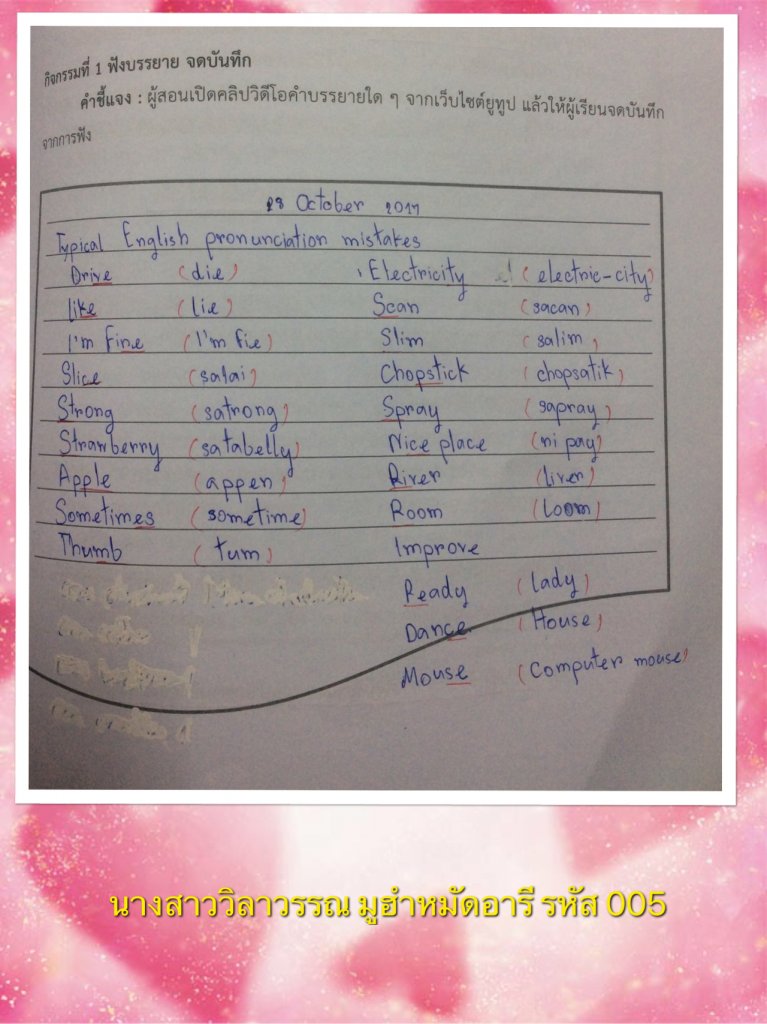 กิจกรรมที่ 1 ฟังบรรยาย จดบันทึก
คำชี้แจง : ผู้สอนเปิดคลิปวิดีโอคำบรรยายใด ๆ จากเว็บไซต์ยูทูป แล้วให้ผู้เรียนจดบันทึก
จากการฟัง
28 October 2017
Typical English pronunciation mistakes
Drive (die) Electricity (electric-city)
like (lie) Scan (sacan)
I'm fine (I'm fie) Slim (salim)
Slice (salai) Chopstick (chopsatik)
Strong (satrong) Spray (sapray)
Strawberry (satabelly) Nice place (ni pay)
Apple (appen) River (liver)
Sometimes (sometime) Room (loom)
Thumb (tum) Improve
Ready (lady)
Dance (House)
Mouse (Computer mouse)
นางสาววิลาวรรณ มูฮำหมัดอารี รหัส 005